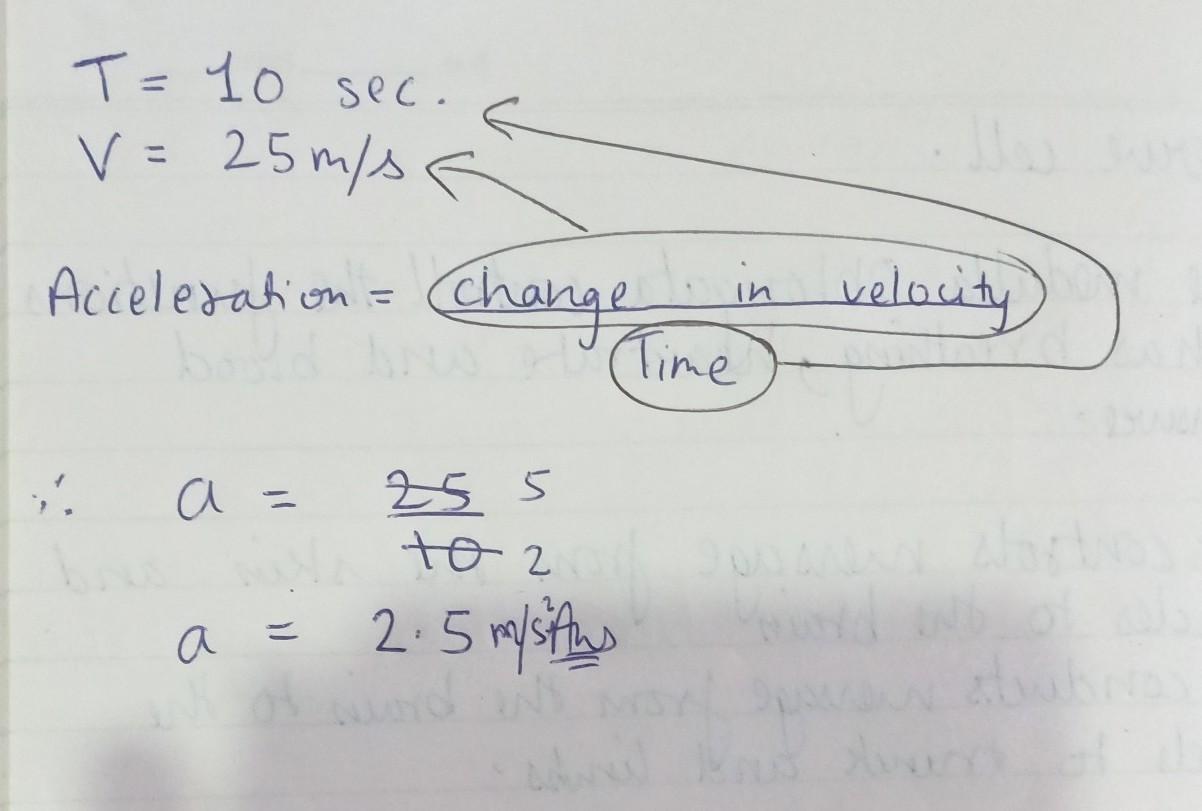 T = 10 sec.
V = 25 m/s
Acceleration = change in velocity
Time
∴ a = 25 5
10 2
a = 2.5 m/s² Ans